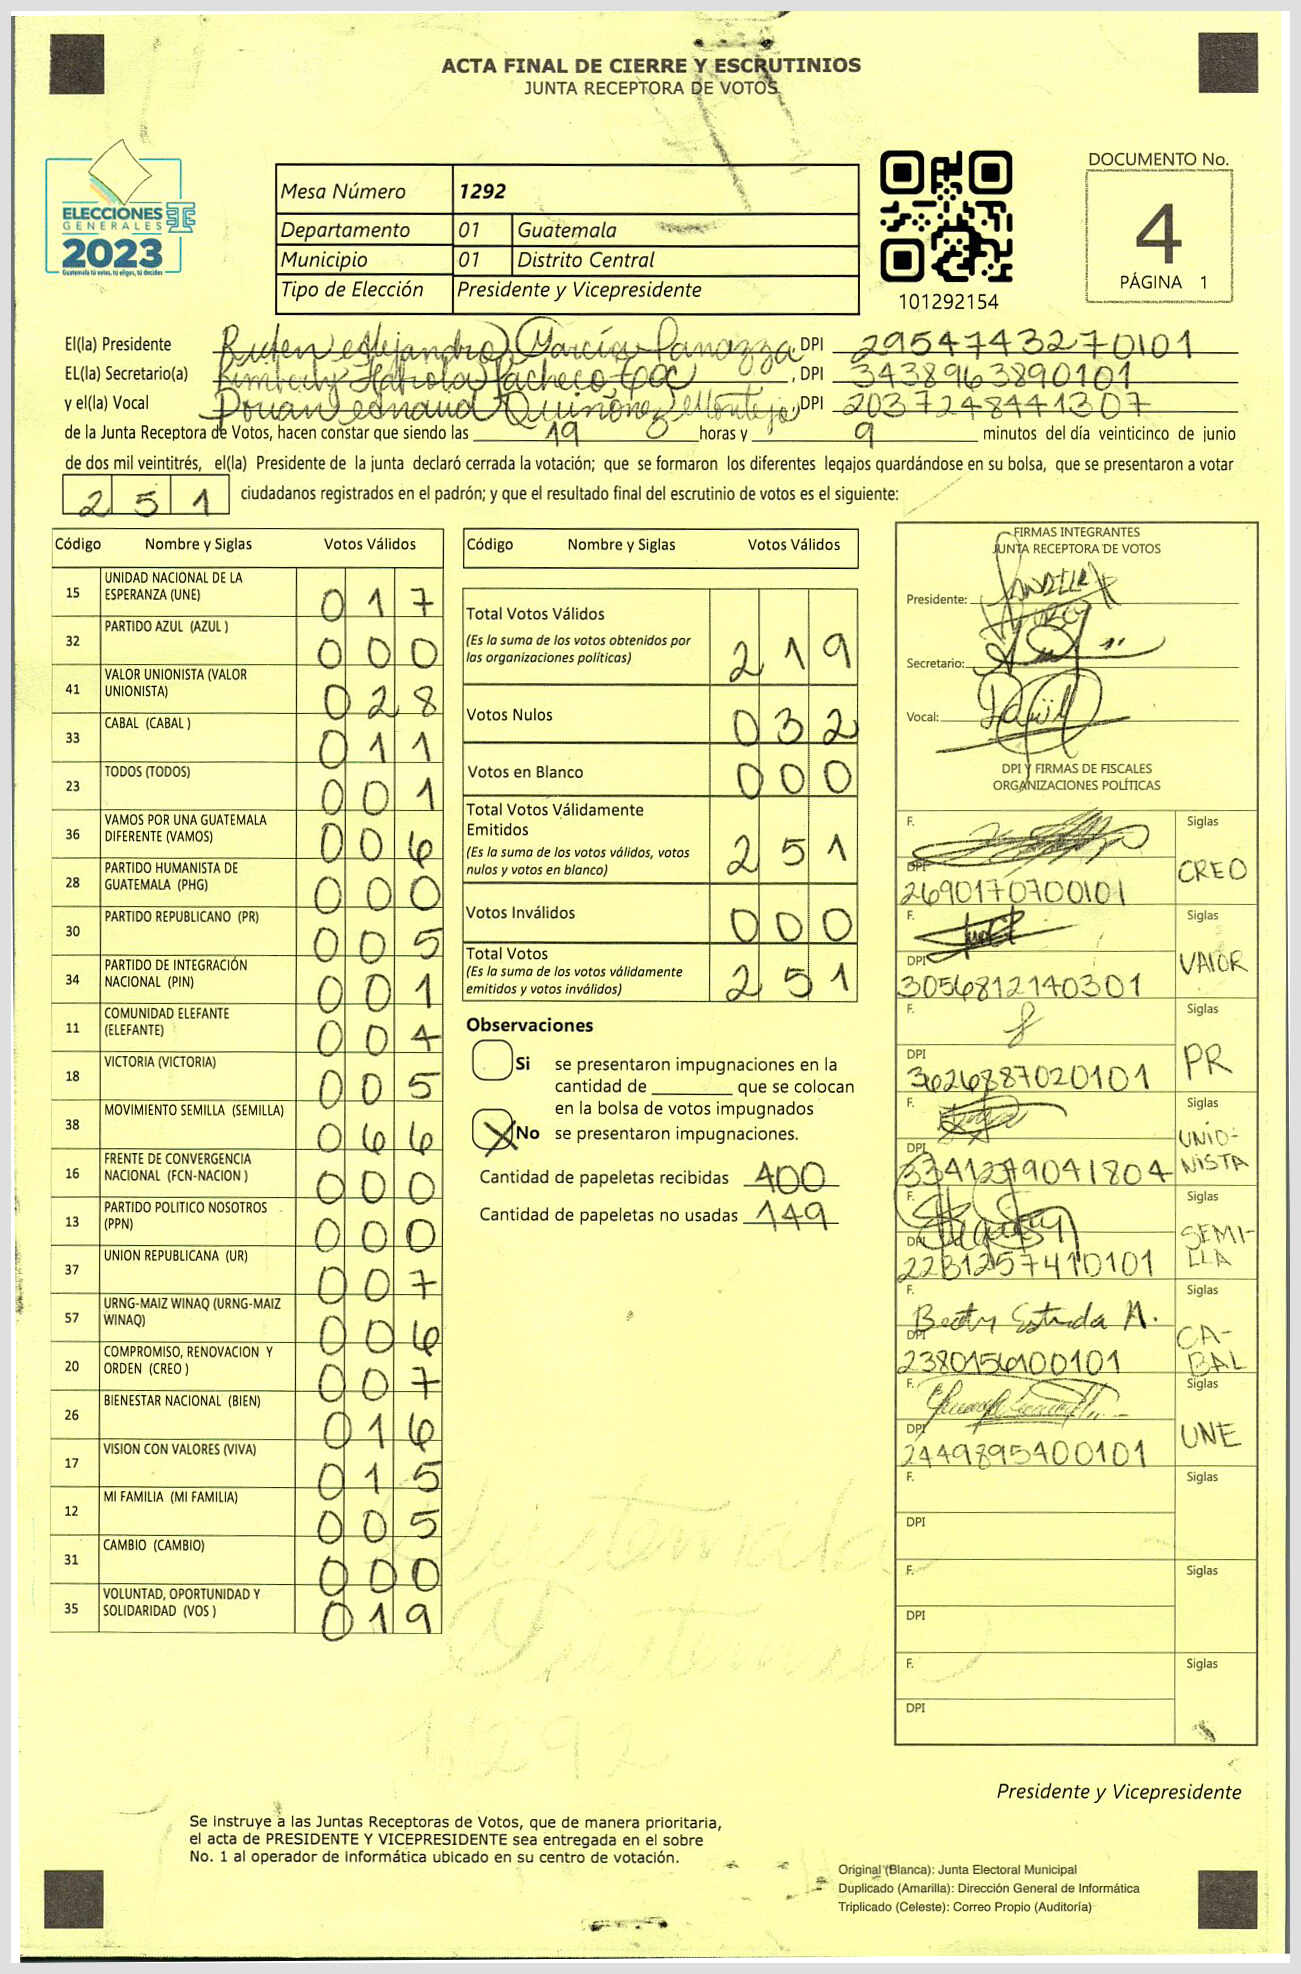 ACTA FINAL DE CIERRE Y ESCRUTINIOS
JUNTA RECEPTORA DE VOTOS
ELECCIONES
GENERALES
2023
Guatemala tú votas, tú eliges, tú decides
Mesa Número 1292
Departamento 01 Guatemala
Municipio 01 Distrito Central
Tipo de Elección Presidente y Vicepresidente
101292154
DOCUMENTO No.
4
PÁGINA 1
El(la) Presidente Ruben Alejandro García DPI 2954743270101
EL(la) Secretario(a) Kimberly Pacheco , DPI 3438963890101
y el(la) Vocal Quiñónez Montejo, DPI 2037248441307
de la Junta Receptora de Votos, hacen constar que siendo las 19 horas y 9 minutos del día veinticinco de junio
de dos mil veintitrés, el(la) Presidente de la junta declaró cerrada la votación; que se formaron los diferentes legajos guardándose en su bolsa, que se presentaron a votar
251 ciudadanos registrados en el padrón; y que el resultado final del escrutinio de votos es el siguiente:
Código Nombre y Siglas Votos Válidos
15 UNIDAD NACIONAL DE LA ESPERANZA (UNE) 017
32 PARTIDO AZUL (AZUL ) 000
41 VALOR UNIONISTA (VALOR UNIONISTA) 028
33 CABAL (CABAL ) 011
23 TODOS (TODOS) 001
36 VAMOS POR UNA GUATEMALA DIFERENTE (VAMOS) 006
28 PARTIDO HUMANISTA DE GUATEMALA (PHG) 000
30 PARTIDO REPUBLICANO (PR) 005
34 PARTIDO DE INTEGRACIÓN NACIONAL (PIN) 001
11 COMUNIDAD ELEFANTE (ELEFANTE) 004
18 VICTORIA (VICTORIA) 005
38 MOVIMIENTO SEMILLA (SEMILLA) 066
16 FRENTE DE CONVERGENCIA NACIONAL (FCN-NACION ) 000
13 PARTIDO POLITICO NOSOTROS (PPN) 000
37 UNION REPUBLICANA (UR) 007
57 URNG-MAIZ WINAQ (URNG-MAIZ WINAQ) 006
20 COMPROMISO, RENOVACION Y ORDEN (CREO ) 007
26 BIENESTAR NACIONAL (BIEN) 016
17 VISION CON VALORES (VIVA) 015
12 MI FAMILIA (MI FAMILIA) 005
31 CAMBIO (CAMBIO) 000
35 VOLUNTAD, OPORTUNIDAD Y SOLIDARIDAD (VOS ) 019
Código Nombre y Siglas Votos Válidos
Total Votos Válidos 219
(Es la suma de los votos obtenidos por
las organizaciones políticas)
Votos Nulos 032
Votos en Blanco 000
Total Votos Válidamente
Emitidos 251
(Es la suma de los votos válidos, votos
nulos y votos en blanco)
Votos Inválidos 000
Total Votos 251
(Es la suma de los votos válidamente
emitidos y votos inválidos)
Observaciones
Si se presentaron impugnaciones en la
cantidad de ________ que se colocan
en la bolsa de votos impugnados
X No se presentaron impugnaciones.
Cantidad de papeletas recibidas 400
Cantidad de papeletas no usadas 149
FIRMAS INTEGRANTES
JUNTA RECEPTORA DE VOTOS
Presidente:
Secretario:
Vocal:
DPI Y FIRMAS DE FISCALES
ORGANIZACIONES POLÍTICAS
F. Siglas
DPI 2690170700101 CREO
F. Siglas
DPI 3056812140301 VALOR
F. Siglas
DPI 3626887020101 PR
F. Siglas
DPI 3341279041804 UNIO-
NISTA
F. Siglas
DPI 2231257410101 SEMI-
LLA
F. Betty Estrada M. Siglas
DPI 2380156100101 CA-
BAL
F. Siglas
DPI 2449895400101 UNE
F. Siglas
DPI
F. Siglas
DPI
F. Siglas
DPI
Guatemala
Guatemala
1292
Presidente y Vicepresidente
Se instruye a las Juntas Receptoras de Votos, que de manera prioritaria,
el acta de PRESIDENTE Y VICEPRESIDENTE sea entregada en el sobre
No. 1 al operador de informática ubicado en su centro de votación.
Original (Blanca): Junta Electoral Municipal
Duplicado (Amarilla): Dirección General de Informática
Triplicado (Celeste): Correo Propio (Auditoría)